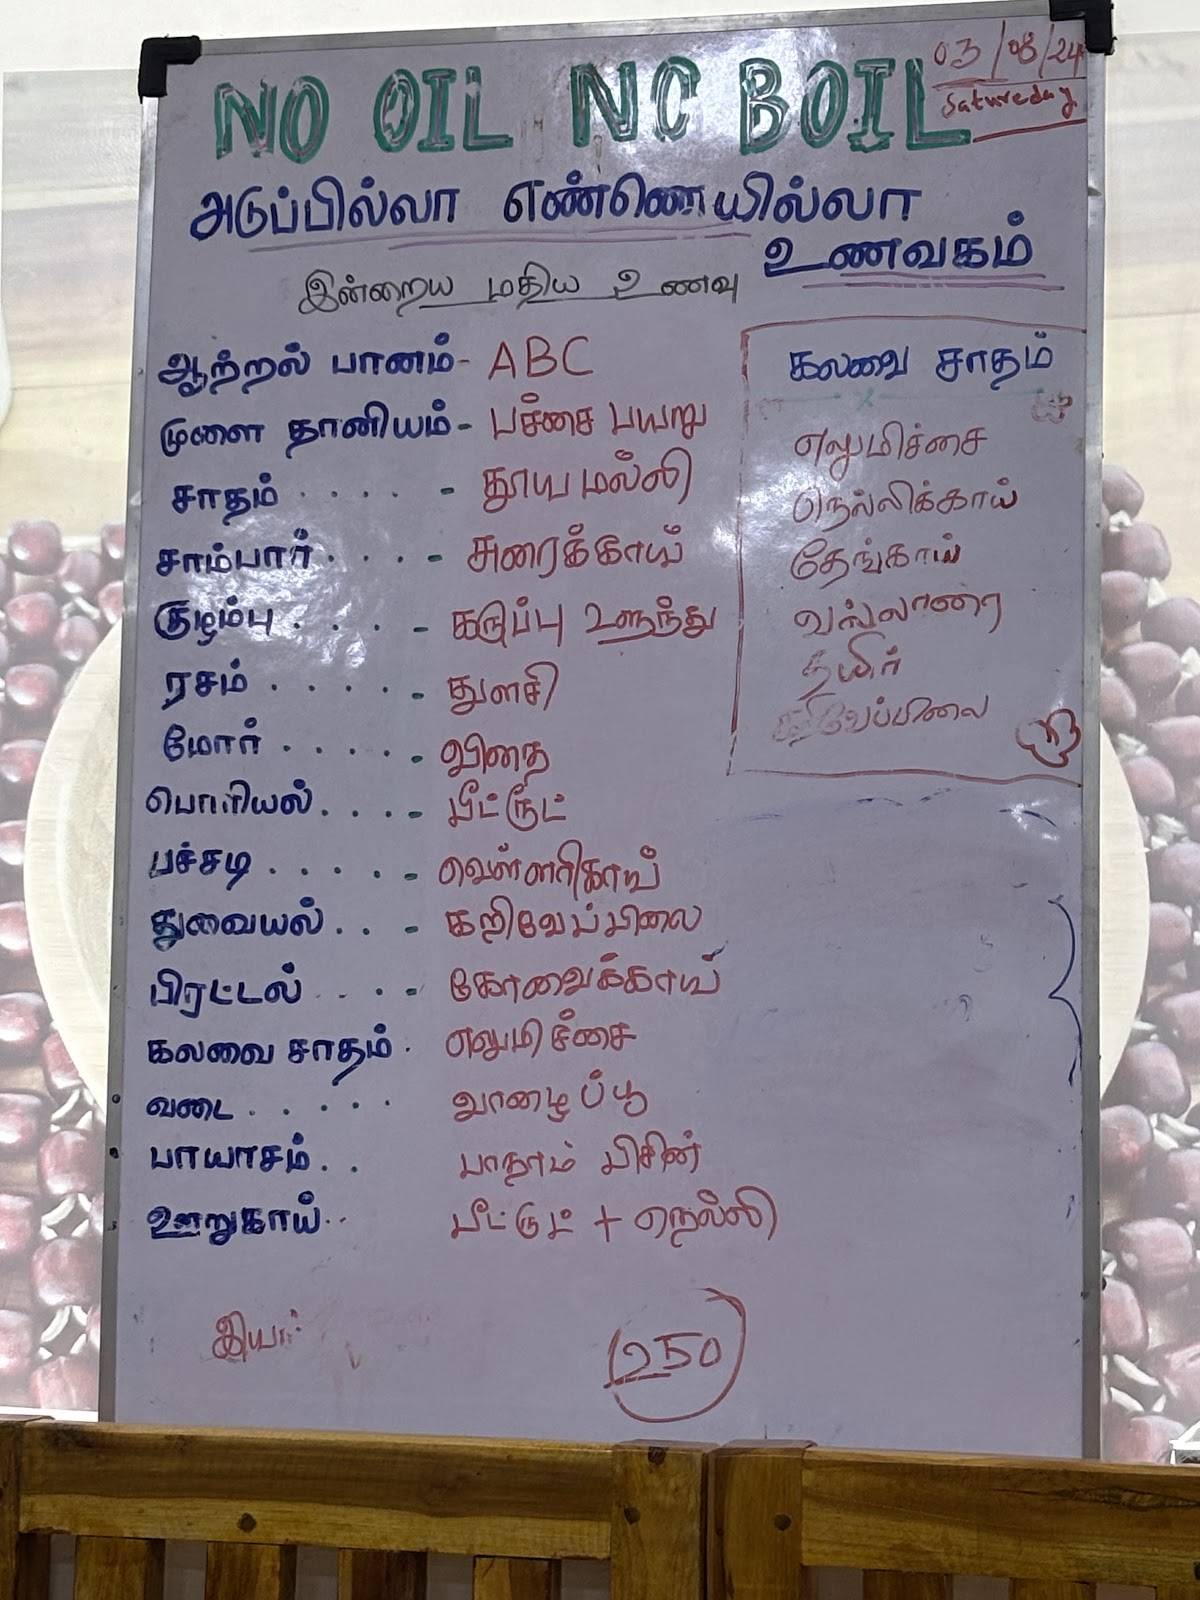 03/08/24
Satureday
NO OIL NO BOIL
அடுப்பில்லா எண்ணெயில்லா
உணவகம்
இன்றைய மதிய உணவு
ஆற்றல் பானம்- ABC
முளை தானியம்- பச்சை பயறு
சாதம் . . . . - தூயமல்லி
சாம்பார் . . . . - சுரைக்காய்
குழம்பு . . . . - கருப்பு உளுந்து
ரசம் . . . . . - துளசி
மோர் . . . . . - விதை
பொரியல் . . . . - பீட்ரூட்
பச்சடி . . . . . - வெள்ளரிகாய்
துவையல் . . - கறிவேப்பிலை
பிரட்டல் . . . - கோவைக்காய்
கலவை சாதம் . எலுமிச்சை
வடை . . . . . வாழைப்பூ
பாயாசம் . . பாதாம் பிசின்
ஊறுகாய் . . பீட்ரூட் + நெல்லி
250
கலவை சாதம்
எலுமிச்சை
நெல்லிக்காய்
தேங்காய்
வல்லாரை
தயிர்
கறிவேப்பிலை